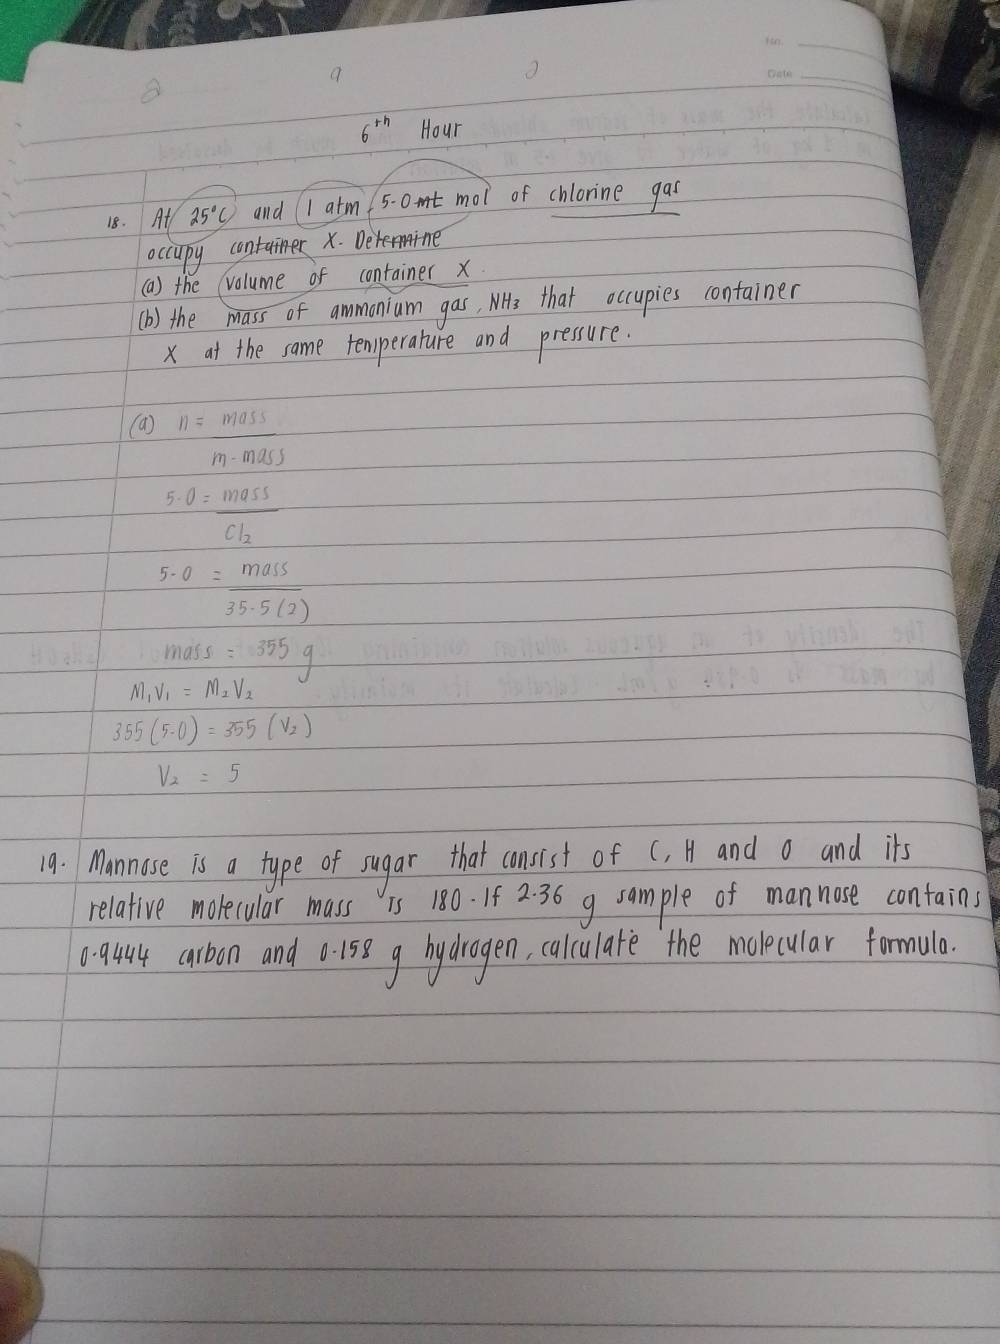 No.
Date
6th Hour
18. At 25°C and 1 atm, 5.0 mol of chlorine gas
occupy container X. Determine
(a) the volume of container X.
(b) the mass of ammonium gas, NH3 that occupies container
X at the same temperature and pressure.
(a) n = mass
m-mass
5.0 = mass
Cl2
5.0 = mass
35.5(2)
mass = 355 g
M1V1 = M2V2
355(5.0) = 355(V2)
V2 = 5
19. Mannose is a type of sugar that consist of C, H and O and its
relative molecular mass is 180. If 2.36 g sample of mannose contains
0.9444 carbon and 0.158 g hydrogen, calculate the molecular formula.